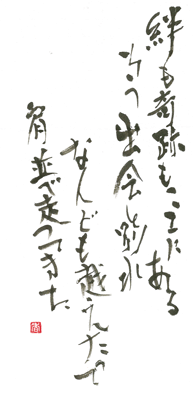 絆も奇跡もここにある
いつも出会い別れ
なんども越えたんで
肩並べ走ってきた